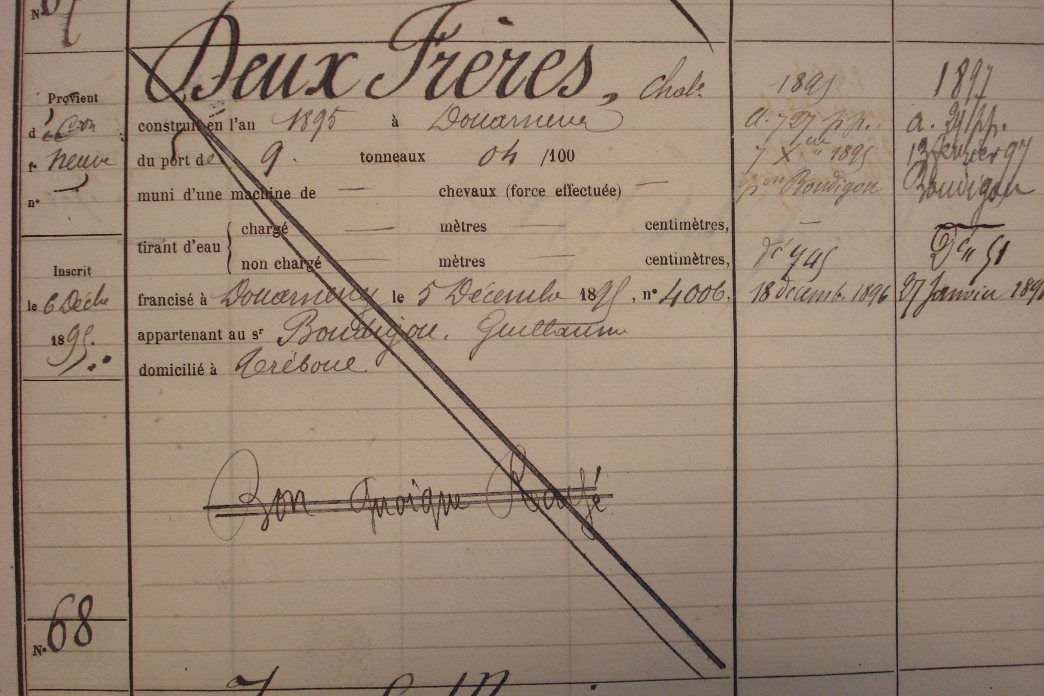 N° 67
Deux Frères, Chale
Provient
d'
fr neuve
n°
construit en l'an 1895 à Douarnenez
du port de 9. tonneaux 04 /100
muni d'une machine de — chevaux (force effectuée) —
tirant d'eau { chargé — mètres — centimètres,
non chargé — mètres — centimètres,
Inscrit
le 6 Décbre
1895.
francisé à Douarnenez le 5 Décembre 1895, n° 4006,
appartenant au sr Boudigou. Guillaume
domicilié à Tréboul
Bon quoique Rayé
1895
a. 727 pp.
7 Xbre 1895
Boudigou
18 décemb. 1896
1897
a. 24 pp.
13 février 97
Boudigou
27 Janvier 189
N° 68